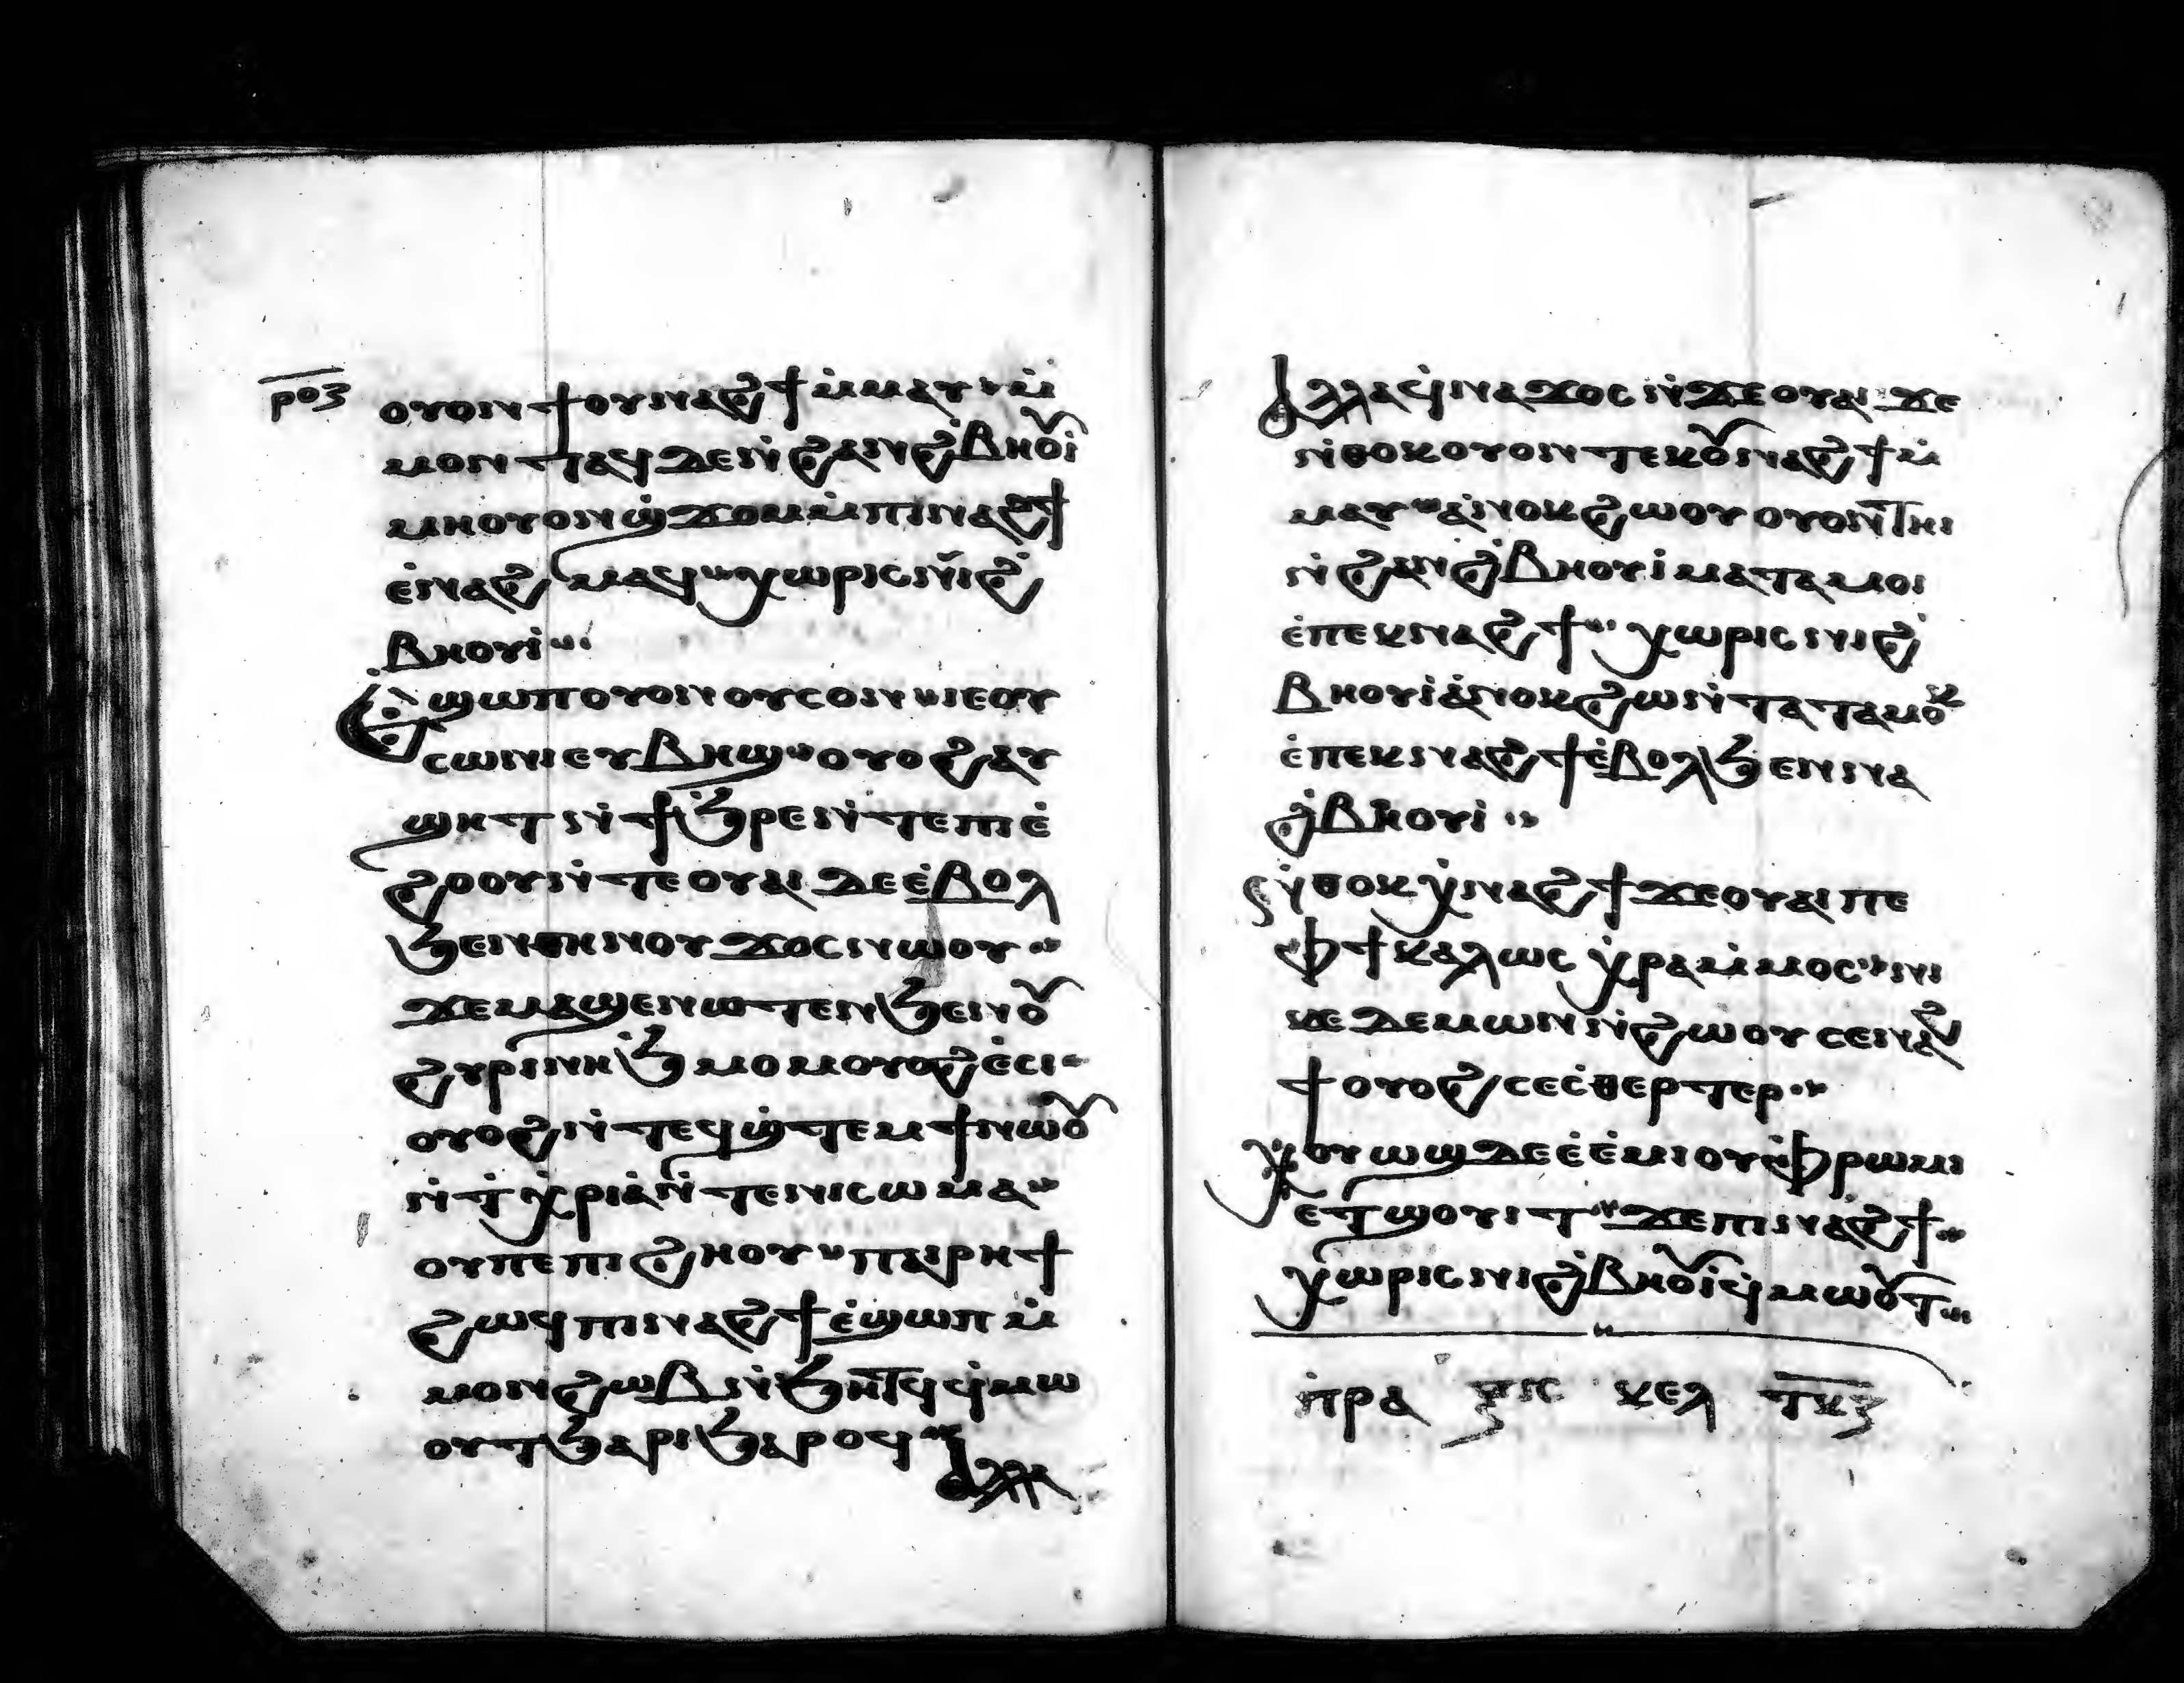 ⲣⲟⲍ
ⲟⲩⲟⲛϯⲟⲩⲛⲁϩϯⲙ̇ⲙⲁⲩⲙ̇
ⲙⲟⲛⲧⲁϥⲇⲉⲛ̇ϩⲁⲛϩ̇ⲃⲏⲟⲩⲓ̇
ⲙⲏⲟⲩⲟⲛϣ̇ϫⲟⲙⲙ̇ⲡⲓⲛⲁϩϯ
ⲉ̇ⲛⲁϩⲙⲁϥ ⲭⲱⲣⲓⲥⲛⲓϩ̇
ⲃⲏⲟⲩⲓ̇
Ⲉ̇ϣⲱⲡⲟⲩⲟⲛⲟⲩⲥⲟⲛⲓⲉⲟⲩ
ⲥⲱⲛⲓⲉⲩⲃⲏϣ ⲟⲩⲟϩⲁⲩ
ϣⲏⲧⲛ̇ϯϧ̇ⲣⲉⲛ̇ⲧⲉⲡⲓⲉ̇
ϩⲟⲟⲩⲛ̇ⲧⲉⲟⲩⲁⲓⲇⲉⲉ̇ⲃⲟⲗ
ϧⲉⲛⲑⲏⲛⲟⲩϫⲟⲥⲛⲱⲟⲩ
ϫⲉⲙⲁϣⲉⲛⲱⲧⲉⲛϧⲉⲛⲟⲩ
ϩⲩⲣⲓⲛⲏϧ̇ⲙⲟⲙⲟⲩⲟϩⲉ̇ⲥⲓ
ⲟⲩⲟϩⲛ̇ⲧⲉϥϣ̇ⲧⲉⲙϯⲛⲱⲟⲩ
ⲛ̇ⲧ̇ⲭ̇ⲣⲓⲁ̇ⲛ̇ⲧⲉⲛⲓⲥⲱⲙⲁ
ⲟⲩⲡⲉⲡⲓϩⲏⲟⲩ ⲡⲁⲓⲣⲏϯ
ϩⲱϥⲡⲓⲛⲁϩϯⲉ̇ϣⲱⲡⲙ̇
ⲙⲟⲛϩⲱⲃⲛ̇ϧⲏⲧϥϥ̇ⲙⲱ
ⲟⲩⲧϧⲁⲣⲓϧⲁⲣⲟϥ
ⲁⲗⲗⲁ
Ⲁⲗⲗⲁϥ̇ⲛⲁϫⲟⲥⲛ̇ϫⲉⲟⲩⲁⲓ ϫⲉ
ⲛ̇ⲑⲟⲕⲟⲩⲟⲛⲧⲉⲕⲟⲩⲛⲁϩϯⲙ̇
ⲙⲁⲩ ⲁ̇ⲛⲟⲕϩⲱⲟⲩⲟⲩⲟⲛⲧⲏⲓ
ⲛ̇ϩⲁⲛϩ̇ⲃⲏⲟⲩⲓ̇ⲙⲁⲧⲁⲙⲟⲓ
ⲉ̇ⲡⲉⲕⲛⲁϩϯ ⲭⲱⲣⲓⲥⲛⲓϩ̇
ⲃⲏⲟⲩⲓ̇ⲁ̇ⲛⲟⲕϩⲱⲛ̇ⲧⲁⲧⲁⲙⲟⲕ
ⲉ̇ⲡⲉⲕⲛⲁϩϯⲉ̇ⲃⲟⲗϧⲉⲛⲛⲁ
ϩ̇ⲃⲏⲟⲩⲓ̇
ⲛ̇ⲑⲟⲕⲭ̇ⲛⲁϩϯϫⲉⲟⲩⲁⲓⲡⲉ
ⲫϯⲕⲁⲗⲱⲥ ⲭ̇ⲣⲁⲙ̇ⲙⲟⲥ ⲛⲓ
ⲕⲉⲇⲉⲙⲱⲛⲛ̇ϩⲱⲟⲩⲥⲉⲛⲁϩ
ϯⲟⲩⲟϩⲥⲉⲥ̇ⲑⲉⲣⲧⲉⲣ
ⲭⲟⲩⲱϣⲇⲉⲉ̇ⲉ̇ⲙⲓⲟⲩⲫ̇ⲣⲱⲙⲓ
ⲉⲧϣⲟⲩⲓⲧ ϫⲉⲡⲓⲛⲁϩϯ
ⲭⲱⲣⲓⲥⲛⲓϩ̇ⲃⲏⲟⲩⲓ̇ϥ̇ⲙⲱⲟⲩⲧ
ⲡ̇ⲣⲁⲝⲓⲥ ⲕⲉⲗ ⲧⲕⲍ